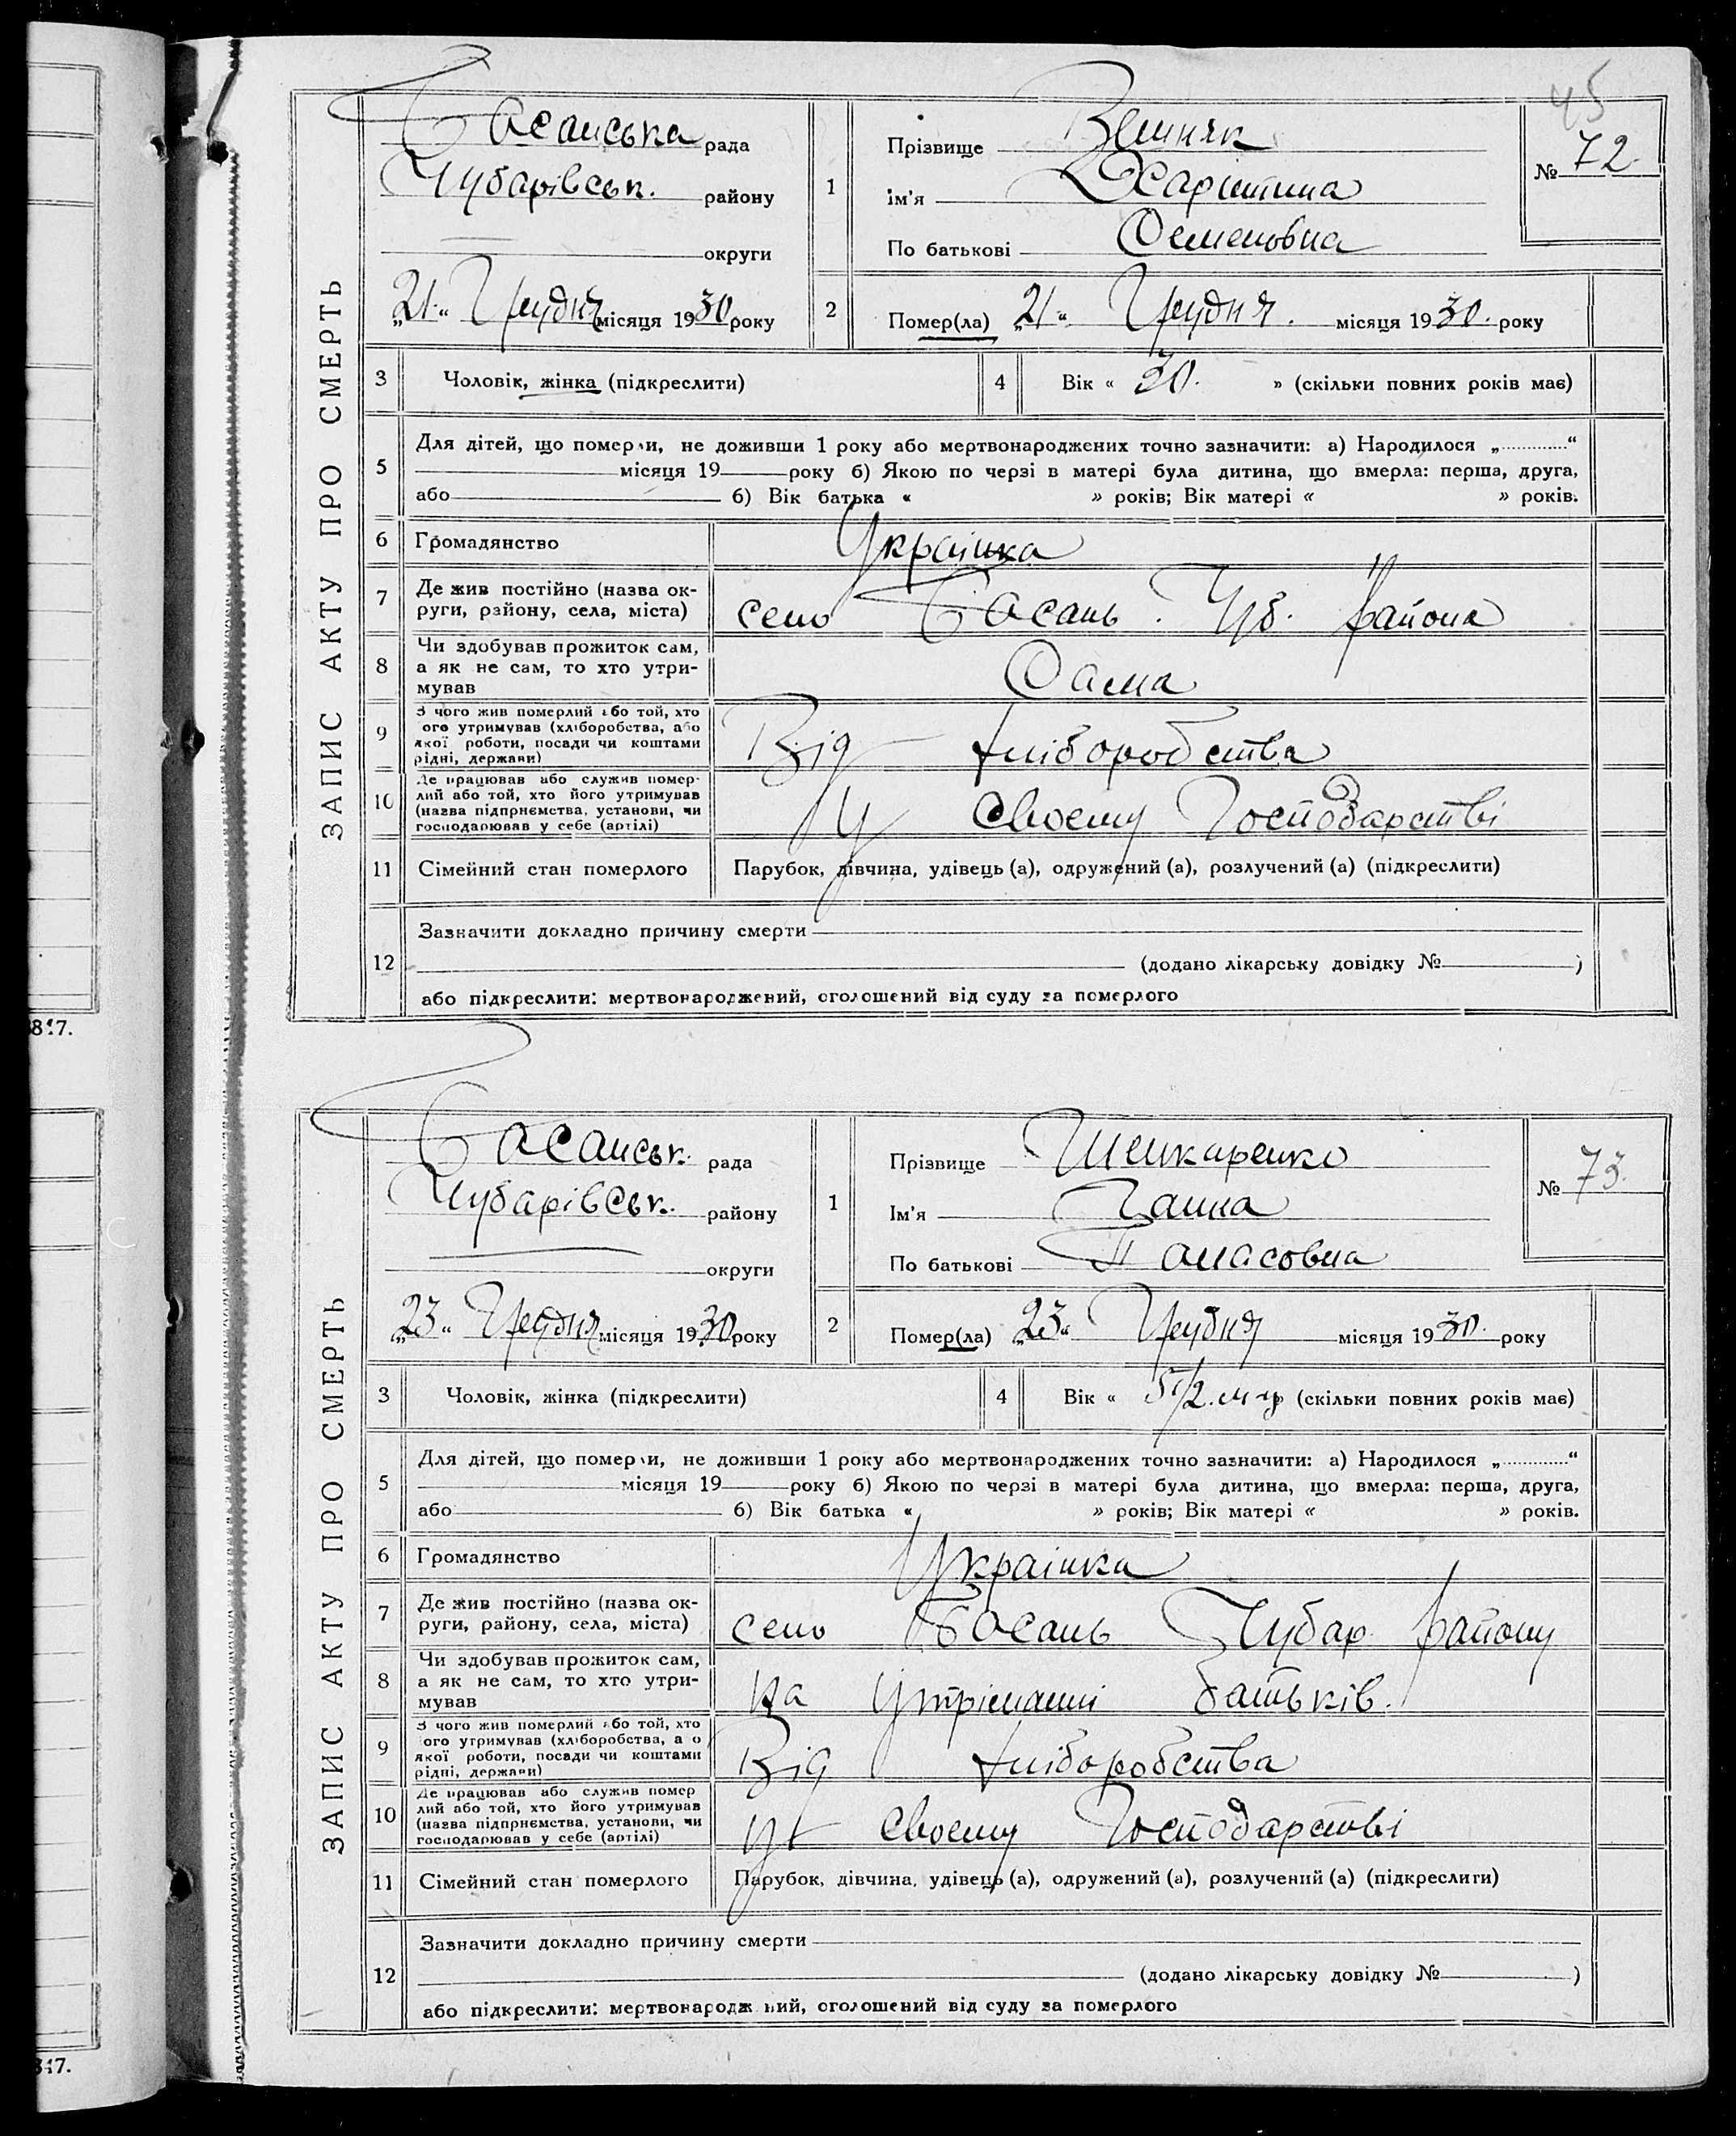 45
ЗАПИС АКТУ ПРО СМЕРТЬ
Басанська рада
Чубарівськ. району
округи
„21“ Грудня місяця 1930 року
1
Прізвище
ім'я Харитина
По батькові Семеновна
№ 72.
2
Помер(ла) „21“ Грудня. місяця 1930. року
3 Чоловік, жінка (підкреслити)
4 Вік « 30. » (скільки повних років має)
5 Для дітей, що померли, не доживши 1 року або мертвонароджених точно зазначити: а) Народилося „ “
місяця 19 року б) Якою по черзі в матері була дитина, що вмерла: перша, друга,
або б) Вік батька « » років; Вік матері « » років.
6 Громадянство Українка
7 Де жив постійно (назва ок-
руги, району, села, міста) село Басань. Чуб. района
8 Чи здобував прожиток сам,
а як не сам, то хто утри-
мував Сама
9 З чого жив померлий або той, хто
ого утримував (хліборобства, або
якої роботи, посади чи коштами
рідні, держави) Від хліборобства
10 Де працював або служив помер-
лий або той, хто його утримував
(назва підприємства, установи, чи
господарював у себе (артілі) У своєму Господарстві
11 Сімейний стан померлого Парубок, дівчина, удівець (а), одружений (а), розлучений (а) (підкреслити)
12 Зазначити докладно причину смерти
(додано лікарську довідку № )
або підкреслити: мертвонароджений, оголошений від суду за померлого
847.
ЗАПИС АКТУ ПРО СМЕРТЬ
Басанськ. рада
Чубарівськ. району
округи
„23“ Грудня місяця 1930 року
1
Прізвище Шенкаренко
Ім'я Ганна
По батькові Панасовна
№ 73.
2
Помер(ла) „23“ Грудня місяця 1930. року
3 Чоловік, жінка (підкреслити)
4 Вік « 5 1/2. м-ц » (скільки повних років має)
5 Для дітей, що померли, не доживши 1 року або мертвонароджених точно зазначити: а) Народилося „ “
місяця 19 року б) Якою по черзі в матері була дитина, що вмерла: перша, друга,
або б) Вік батька « » років; Вік матері « » років.
6 Громадянство Українка
7 Де жив постійно (назва ок-
руги, району, села, міста) село Басань Чубар. району
8 Чи здобував прожиток сам,
а як не сам, то хто утри-
мував на утріманні батьків.
9 З чого жив померлий або той, хто
ого утримував (хліборобства, а о
якої роботи, посади чи коштами
рідні, держави) Від хліборобства
10 Де працював або служив помер
лий або той, хто його утримував
(назва підприємства, установи, чи
господарював у себе (артілі) у своєму Господарстві
11 Сімейний стан померлого Парубок, дівчина, удівець (а), одружений (а), розлучений (а) (підкреслити)
12 Зазначити докладно причину смерти
(додано лікарську довідку № )
або підкреслити: мертвонародж ний, оголошений від суду за померлого